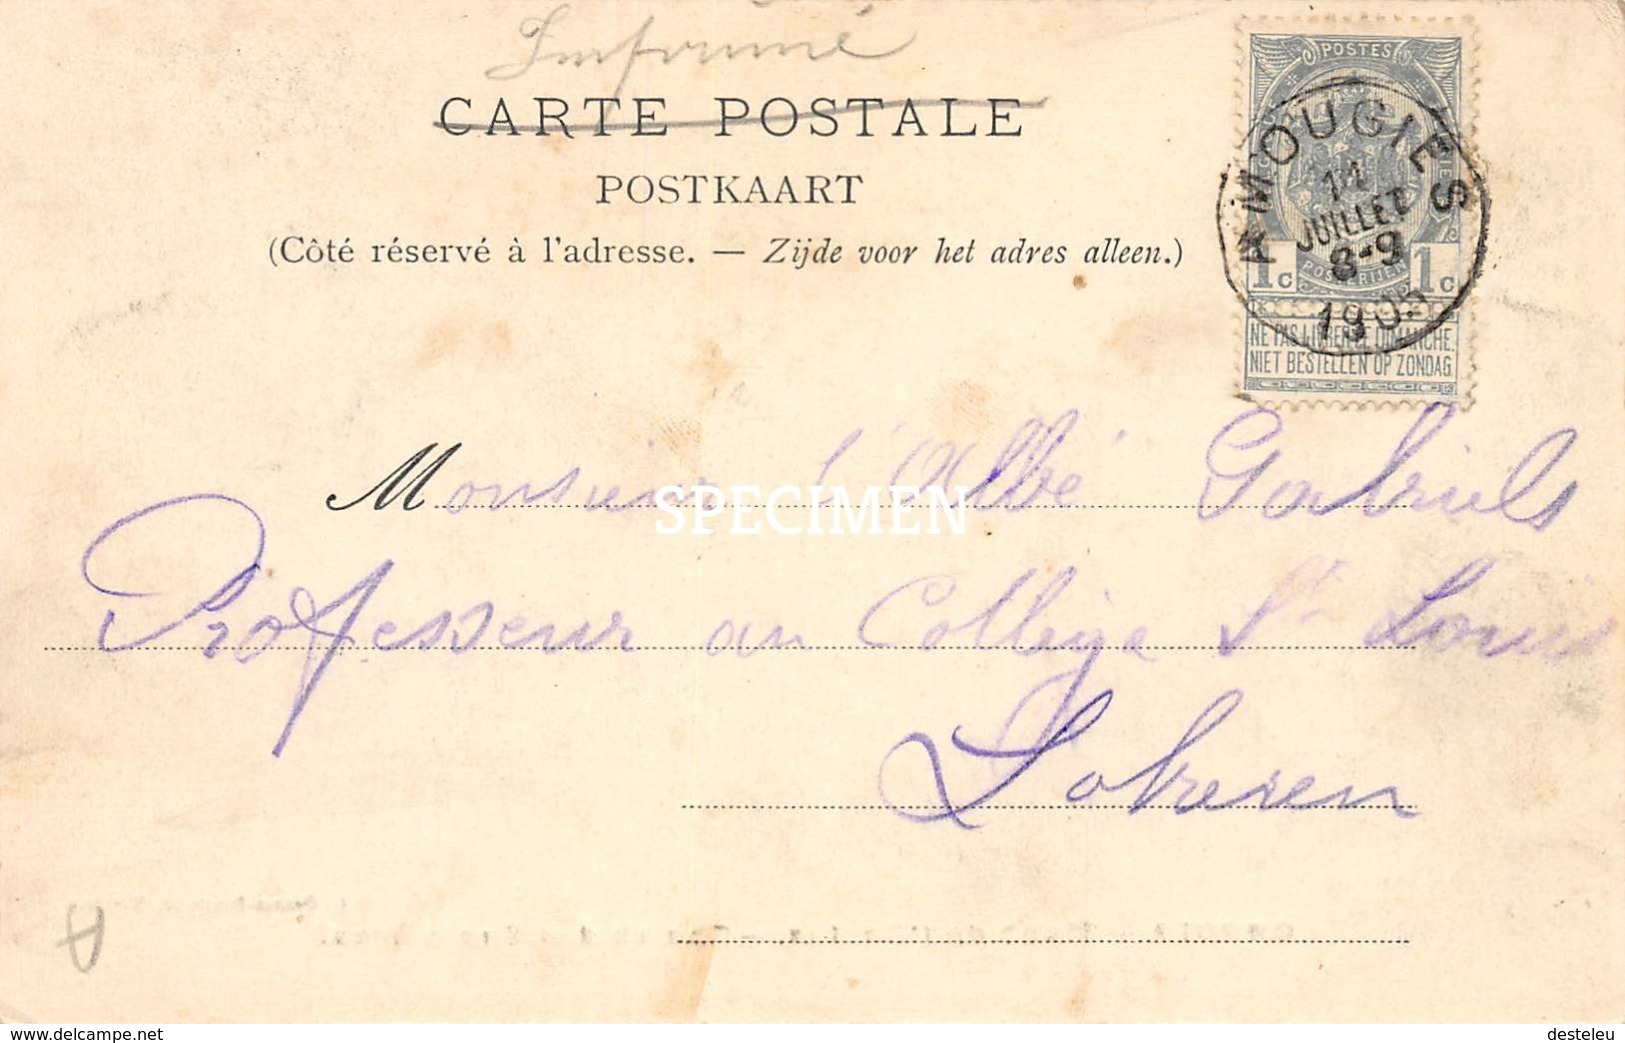 Imprimé
CARTE POSTALE
POSTKAART
(Côté réservé à l'adresse. — Zijde voor het adres alleen.)
POSTES
AMOUGIES
11
JUILLET
8-9
1905
1c POSTERIJEN 1c
NE PAS LIVRER LE DIMANCHE
NIET BESTELLEN OP ZONDAG
Monsieur l'Abbé Gabriels
SPECIMEN
Professeur au Collège St Louis
Lokeren
A
www.delcampe.net
desteleu